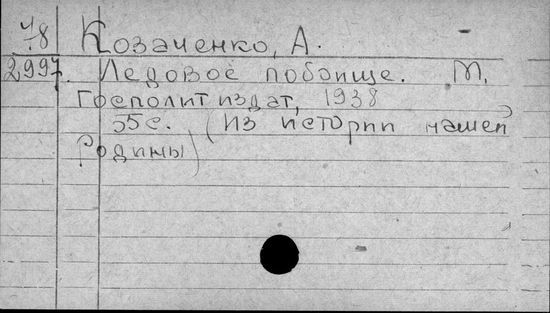 48 Козаченко, А.
2997. Ледовое побоище. М.
Госполитиздат, 1938
55с. (Из истории нашей
Родины)